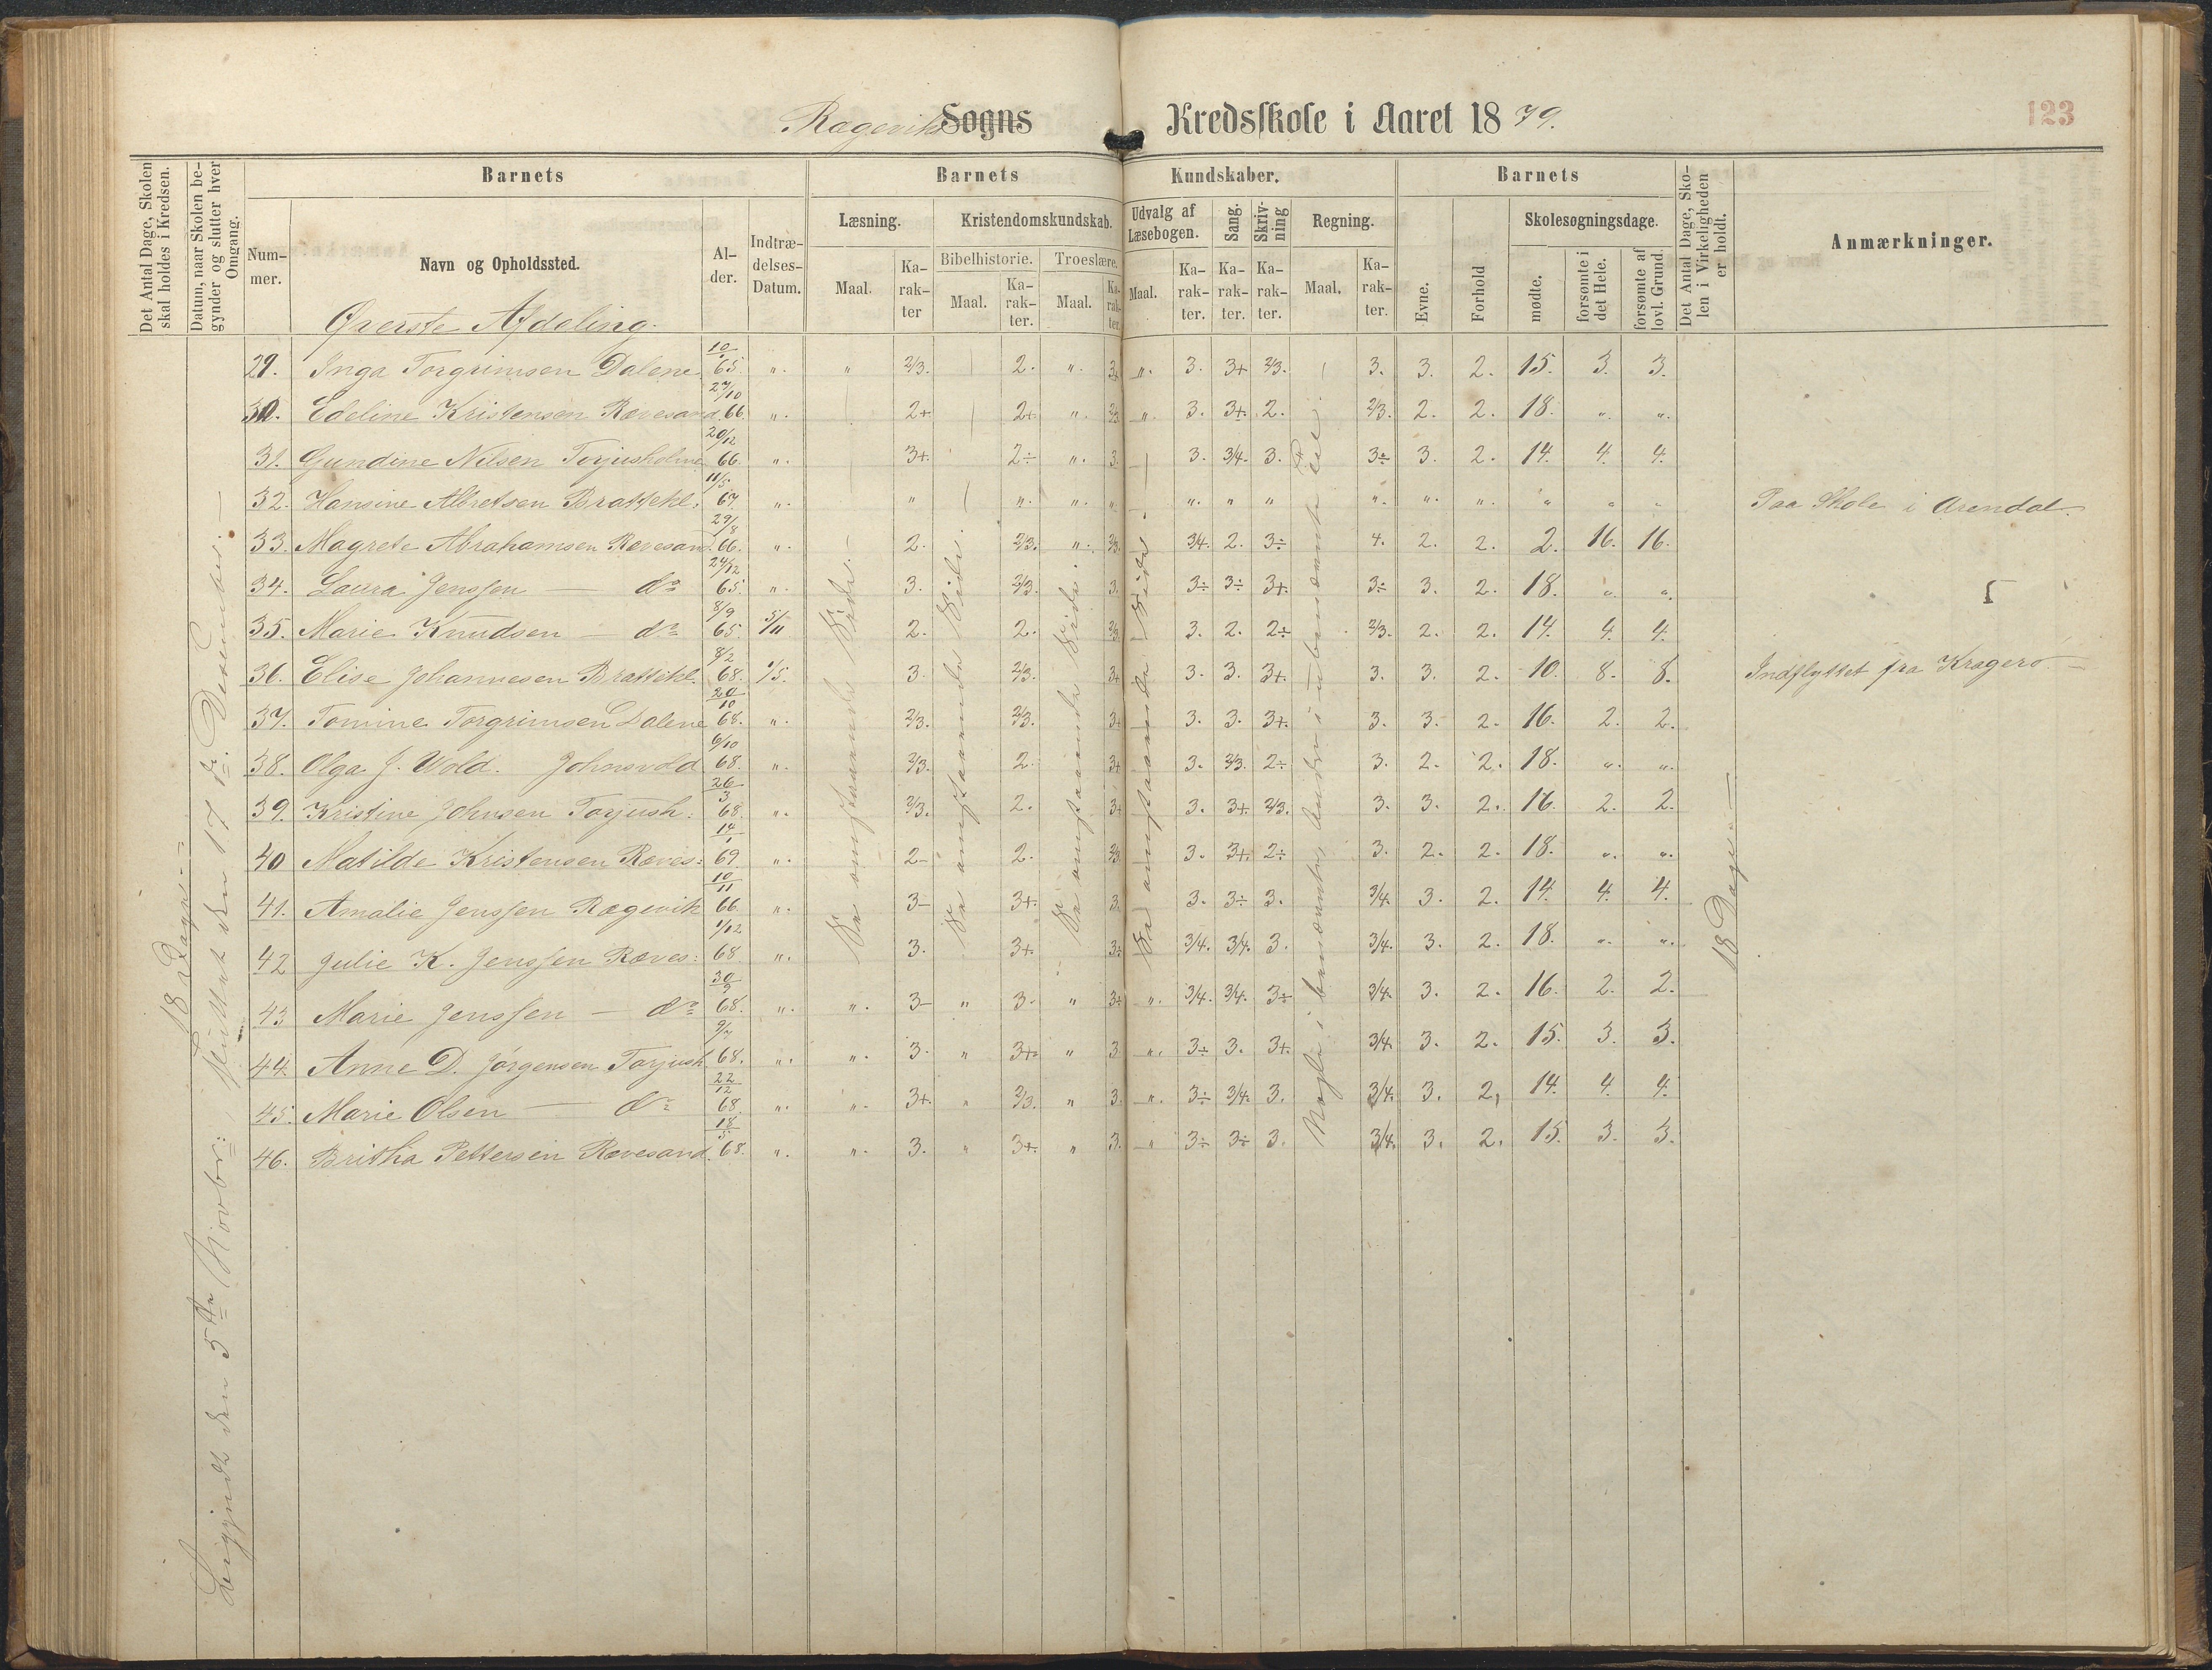 Ragevik Sogns Kredsskole i Aaret 1879.
123
Det Antal Dage, Skolen skal holdes i Kredsen.
Datum, naar Skolen begynder og slutter hver Omgang.
Barnets
Nummer.
Navn og Opholdssted.
Alder.
Indtrædelses-Datum.
Barnets Kundskaber.
Læsning.
Maal.
Karakter
Kristendomskundskab.
Bibelhistorie.
Maal.
Karakter.
Troeslære.
Maal.
Karakter.
Udvalg af Læsebogen.
Maal.
Karakter.
Sang.
Karakter.
Skrivning
Karakter.
Regning.
Maal.
Karakter.
Barnets
Evne.
Forhold
Skolesøgningsdage.
mødte.
forsømte i det Hele.
forsømte af lovl. Grund.
Det Antal Dage, Skolen i Virkeligheden er holdt.
Anmærkninger.
Øverste Afdeling.
29. Inga Torgrimsen Dalene 10/ 65. " " 2/3. 2. " 3+ " 3. 3+ 2/3. 3. 3. 2. 15. 3. 3.
30. Edeline Kristensen Rævesand 27/10 66. " 2+ 2+ " 2/3 " 3. 3+. 2. 2/3. 2. 2. 18. " "
31. Gundine Nilsen Torjusholme 20/12 66. " 3+. 2÷ " 3. 3. 3/4. 3. 3÷ 3. 2. 14. 4. 4.
32. Hansine Albretsen Brattekl. 11/5 67. " " " " " " " " " " " " " " Paa Skole i Arendal.
33. Magrete Abrahamsen Rævesand. 29/8 66. " 2. 2/3. " 2/3. 3/4. 2. 3÷ 4. 2. 2. 2. 16. 16.
34. Laura Jenssen — do 24/12 65. " 3. 2/3. 3. 3÷ 3÷ 3+. 3÷ 3. 2. 18. " "
35. Marie Knudsen — do 8/9 65. 5/11 2. 2. 2/3 3. 2. 2÷ 2/3. 2. 2. 14. 4. 4.
36. Elise Johannesen Brattekl. 8/2 68. 1/5. 3. 2/3. 3+ 3. 3. 3+. 3. 3. 2. 10. 8. 8. Indflyttet fra Kragerø —
37. Tomine Torgrimsen Dalene 20/10 68. " 2/3. 2/3. 3+ 3. 3. 3+. 3. 3. 2. 16. 2. 2.
38. Olga J. Wold. Johnsvold 6/10 68. " 2/3. 2. 3+ 3. 2/3. 2÷ 3. 2. 2. 18. " "
39. Kristine Johnsen Torjush: 26/3 68. " 2/3. 2. 3+ 3. 3+ 2/3. 3. 3. 2. 16. 2. 2.
40 Matilde Kristensen Ræves: 14/1 69 " 2- 2. 2/3 3. 3+. 2÷ 3. 2. 2. 18. " "
41. Amalie Jenssen Ragevik 10/11 66 " 3- 3+. 3. 3. 3÷ 3. 3/4. 3. 2. 14. 4. 4.
42 Julie K. Jenssen Ræves: 1/12 68 " 3. 3+. 3÷ 3/4. 3/4. 3. 3/4. 3. 2. 18. " "
43 Marie Jenssen — do 30/9 68. " " 3- " 3. " 3÷ " 3/4. 3/4. 3÷ 3/4. 3. 2. 16. 2. 2.
44. Anne D. Jørgensen Torjush 9/7 68. " " 3. " 3+. " 3. " 3÷ 3. 3+. 3/4. 3. 2. 15. 3. 3.
45. Marie Olsen — do 22/12 68 " " 3+. " 2/3. " 3. " 3÷ 3/4. 3. 3/4. 3. 2, 14. 4. 4.
46. Britha Pettersen Rævesand 18/5 68. " " 3. " 3+. " 3. " 3÷ 3÷ 3. 3/4. 3. 2. 15. 3. 3.
18 Dage. —
Begyndt den 5te Novbr:, sluttet den 17de Desember. —
Se omstaaende Side. —
Se omstaaende Side.
Se omstaaende Side.
Se omstaaende Side.
Nogle i benævnte, Andre i ubenævnte Tal.
18 Dage. —